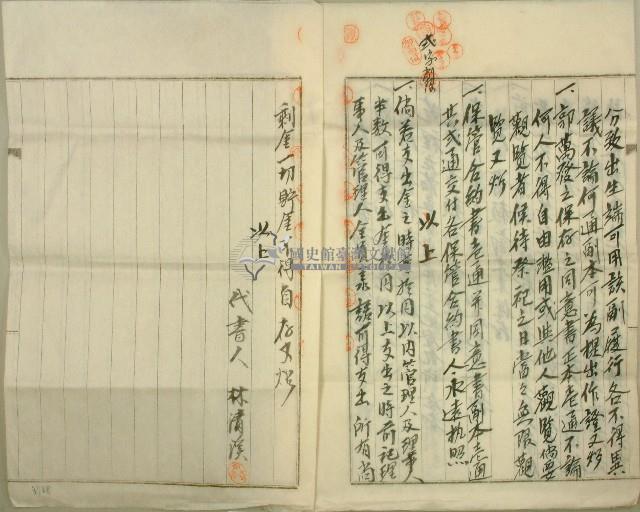 弍字刪除
分致出生端可用該副履行各不得異
議不論何通副本可為提出作證又炤
一、邱萬發之保存之同意書正本壱通不論
何人不得自由濫用或與他人觀覽倘要
觀覽者候待祭祀之日當之無限觀
覽又炤
一、保管合約書壱通并同意書副本壱通
共弍通交付各保管合約書人永遠執照
以上
一、倘若支出金之時拾円以內管理人及理事人
半數可得支出金拾円以上支出之時前記理
事人及管理人全員承諾可得支出所有尚
剩金一切貯金不得自存又炤
以上
代書人 林清溪
國史館臺灣文獻館
TAIWAN HISTORICA